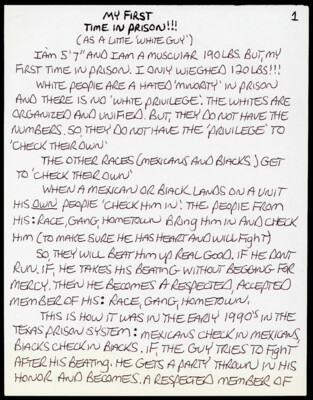 MY FIRST
TIME IN PRISON!!!
1
(AS A LITTLE 'WHITE GUY')
I'AM 5'7" AND I AM A MUSCULAR 190LBS. BUT, MY
FIRST TIME IN PRISON. I ONLY WIEGHED 120LBS!!!
WHITE PEOPLE ARE A HATED 'MINORITY' IN PRISON
AND THERE IS NO 'WHITE PRIVILEGE'. THE WHITES ARE
ORGANIZED AND UNIFIED. BUT, THEY DO NOT HAVE THE
NUMBERS. SO, THEY DO NOT HAVE THE 'PRIVILEGE' TO
'CHECK THEIR OWN'
THE OTHER RACES (MEXICANS AND BLACKS) GET
TO 'CHECK THEIR OWN'
WHEN A MEXICAN OR BLACK LANDS ON A UNIT
HIS OWN PEOPLE 'CHECK HIM IN'. THE PEOPLE FROM
HIS: RACE, GANG, HOMETOWN BRING HIM IN AND CHECK
HIM (TO MAKE SURE HE HAS HEART AND WILL FIGHT)
SO, THEY WILL BEAT HIM UP REAL GOOD. IF HE DONT
RUN. IF, HE TAKES HIS BEATING WITHOUT BEGGING FOR
MERCY. THEN HE BECOMES A RESPECTED, ACCEPTED
MEMBER OF HIS: RACE, GANG, HOMETOWN.
THIS IS HOW IT WAS IN THE EARLY 1990'S IN THE
TEXAS PRISON SYSTEM: MEXICANS CHECK IN MEXICANS,
BLACKS CHECK IN BLACKS. IF, THE GUY TRIES TO FIGHT
AFTER HIS BEATING. HE GETS A PARTY THROWN IN HIS
HONOR AND BECOMES. A RESPECTED MEMBER OF